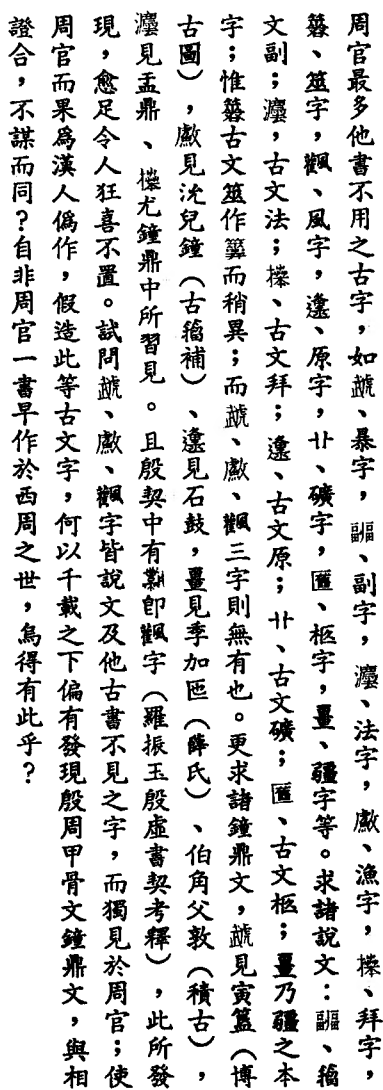 周官最多他書不用之古字，如虣、暴字，疈、副字，灋、法字，䱷、漁字，𢷎、拜字，
簭、筮字，飌、風字，邍、原字，卝、礦字，匶、柩字，畺、疆字等。求諸說文：疈、籀
文副；灋，古文法；𢷎、古文拜；邍、古文原；卝、古文礦；匶、古文柩；畺乃疆之本
字；惟簭古文筮作𥷨而稍異；而虣、䱷、飌三字則無有也。更求諸鐘鼎文，虣見寅簋（博
古圖），䱷見沇兒鐘（古籀補）、邍見石鼓，畺見季加匜（薛氏）、伯角父敦（積古），
灋見盂鼎、𢷎尤鐘鼎中所習見。且殷契中有即飌字（羅振玉殷虛書契考釋），此所發
現，愈足令人狂喜不置。試問虣、䱷、飌字皆說文及他古書不見之字，而獨見於周官；使
周官而果為漢人偽作，假造此等古文字，何以千載之下偏有發現殷周甲骨文鐘鼎文，與相
證合，不謀而同？自非周官一書早作於西周之世，烏得有此乎？